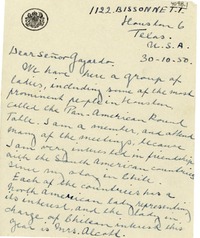 1122 BISSONNETT
Houston 6
Texas.
U.S.A.
30-10-50.
Dear Señor Gajardo.
We have here a group of
ladies, including some of the most
prominent people in Houston
called the Pan. American Round
Table. I am a member, and attend
many of the meetings, because
I am very interested in friendship
with the South American countries
since my stay in Chile.
Each of the countries has a
North American lady representing
its interest, and the lady in
charge of Chilean interest this
year is Mrs. Alcott.